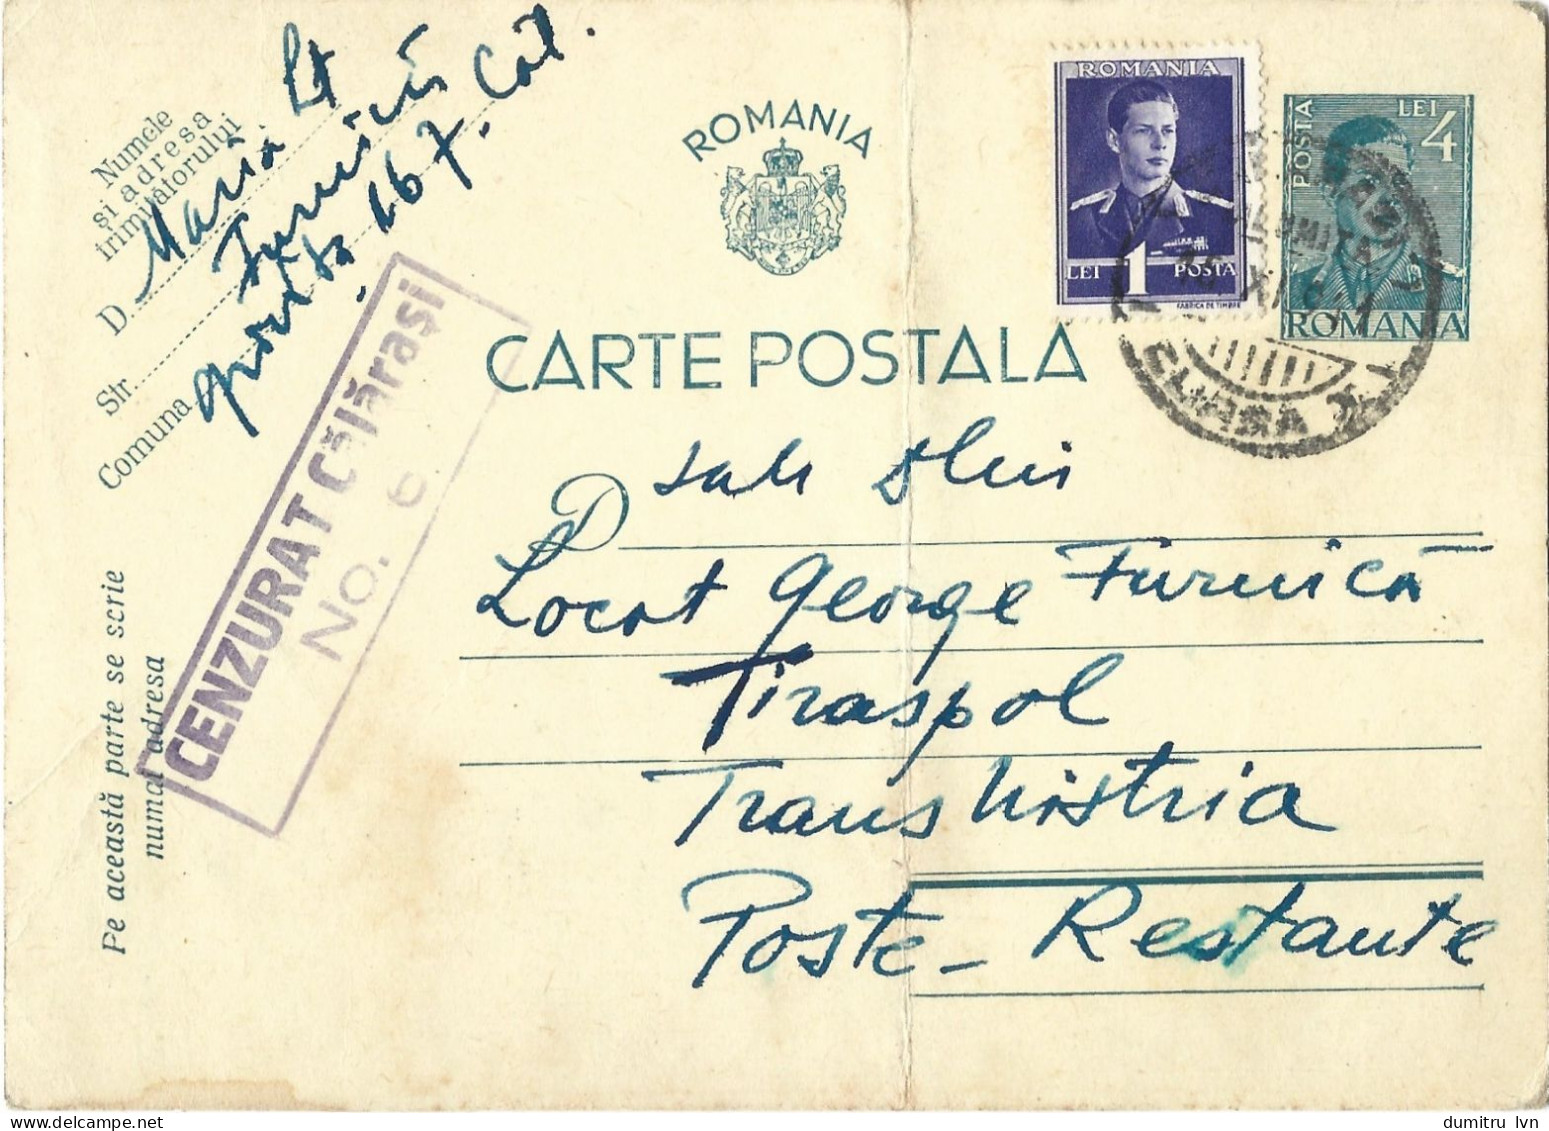 Numele
și adresa
trimițătorului
D. Maria Lt
Furnică
Str.
Comuna
167. Căl.
CENZURAT Călărași
No. 6
Pe această parte se scrie
numai adresa
ROMANIA
CARTE POSTALA
ROMANIA
LEI 1 POSTA
FABRICA DE TIMBRE
POSTA
LEI 4
ROMANIA
CURSA
D
Locot George Furnică
Tiraspol
Transnistria
Poste-Restante
dumitru lvn